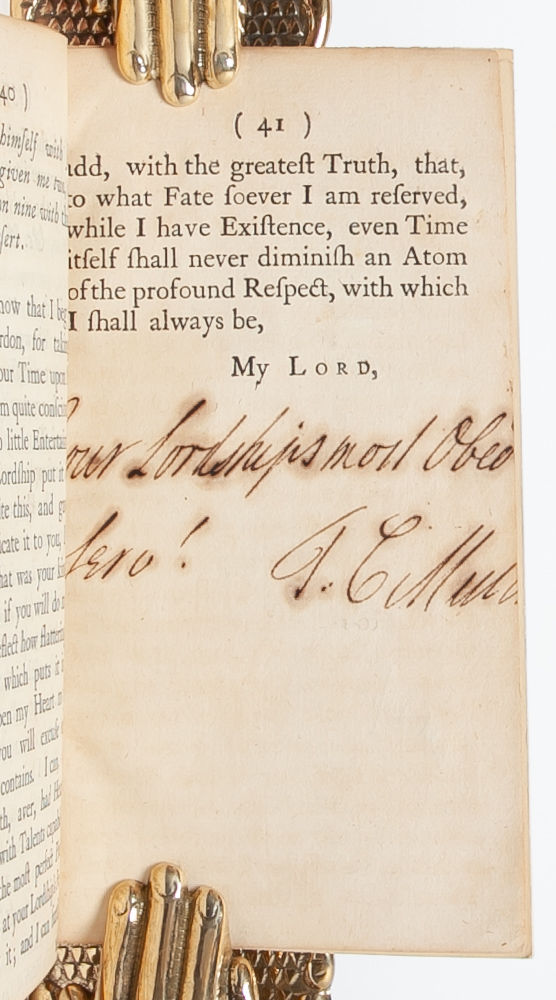 40 )
himſelf with
given me
n nine with
ſert.
now that I
rdon, for
our Time upon
m quite
little Entertai
ordſhip put it
te this, and
cate it to you,
hat was your
if you will do
flect how flatterin
which puts it
en my Heart
you will excuſe
contains. I can
th, aver, had
with Talents
he moſt perfect
at your Lordſhip
it; and I can
( 41 )
add, with the greateſt Truth, that,
to what Fate ſoever I am reſerved,
while I have Exiſtence, even Time
itſelf ſhall never diminiſh an Atom
of the profound Reſpect, with which
I ſhall always be,
My LORD,
our Lordships most Obed
Serv!
T. C.